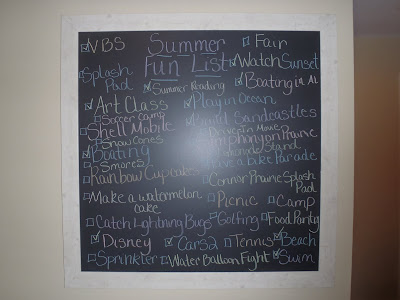 VBS
Summer
Fun List
Fair
Splash
Pad
Watch Sunset
Summer Reading
Boating in AL
Art Class
Play in Ocean
Soccer Camp
Build Sandcastles
Shell Mobile
Drive-in Movie
Snow Cones
Symphony on Prairie
Boating
Lemonade Stand
Smores
Have a Lake Parade
Rainbow Cupcakes
Connor Prairie Splash
Pad
Make a watermelon
cake
Picnic
Camp
Catch Lightning Bugs
Golfing
Food Pantry
Disney
Cars 2
Tennis
Beach
Sprinkler
Water Balloon Fight
Swim